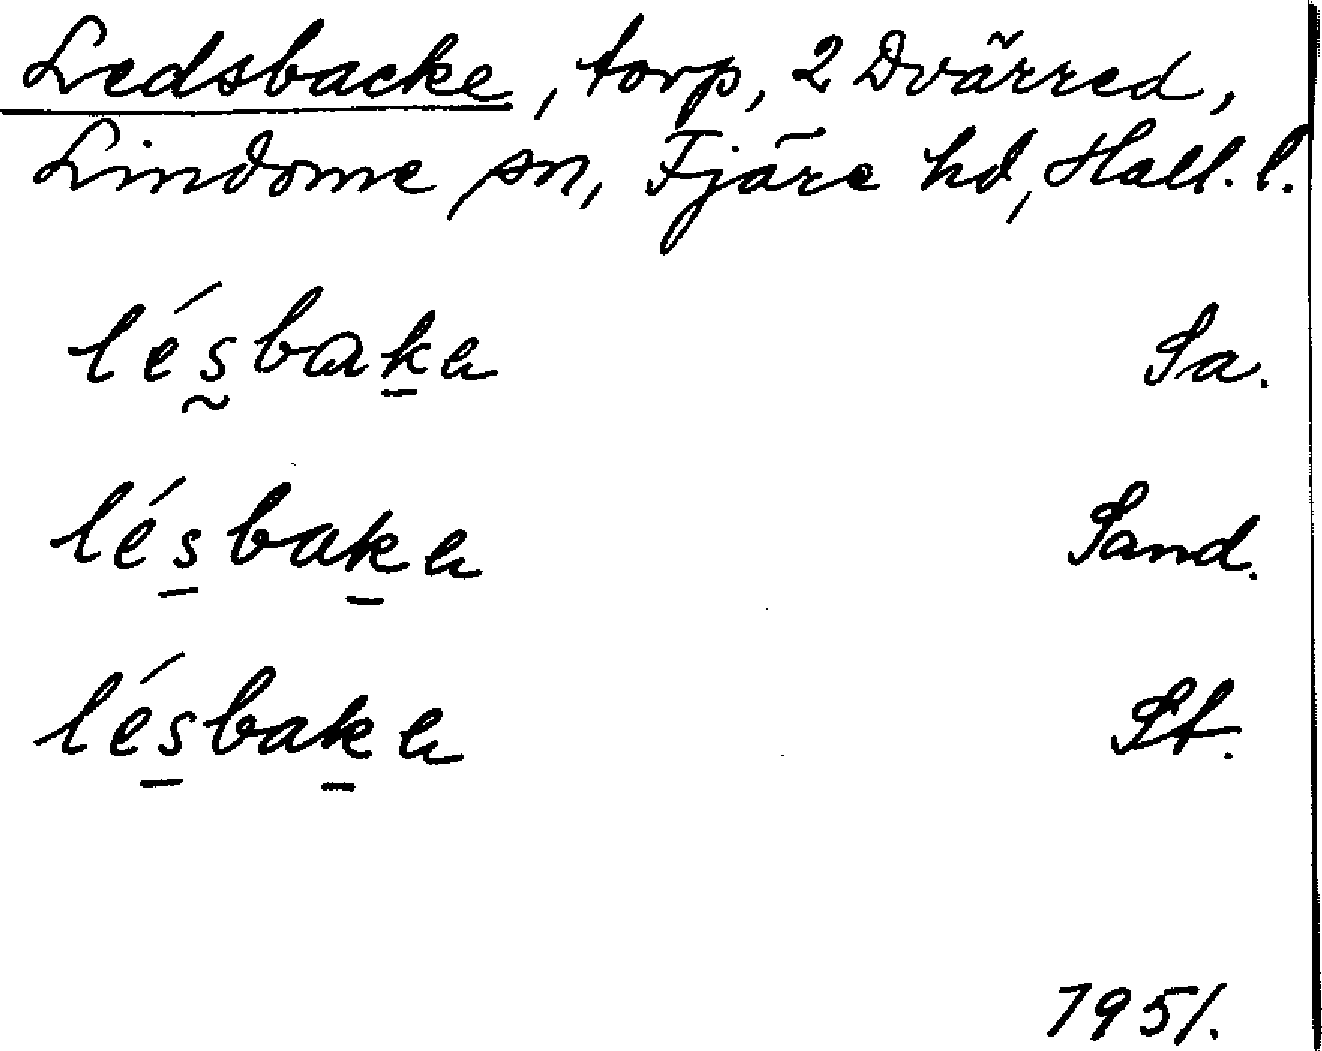 Ledsbacke, torp, 2 Dvärred,
Lindome sn, Fjäre hd, Hall. l.
lésbaka Sa.
lésbaka Sand.
lésbaka St.
1951.